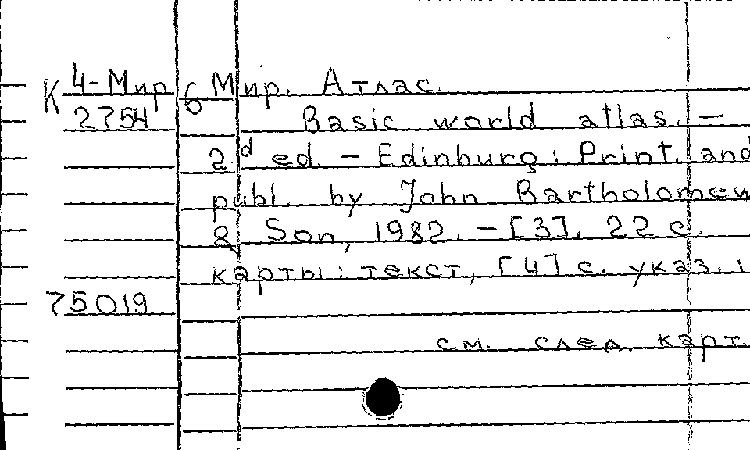 К 4-Мир 6
2754
Мир. Атлас.
Basic world atlas. –
2d ed. – Edinburg: Print. and
publ. by John Bartholomew
& Son, 1982. – [3], 22 с.
карты: текст, [4] с. указ.;
75019
см. след. карт.